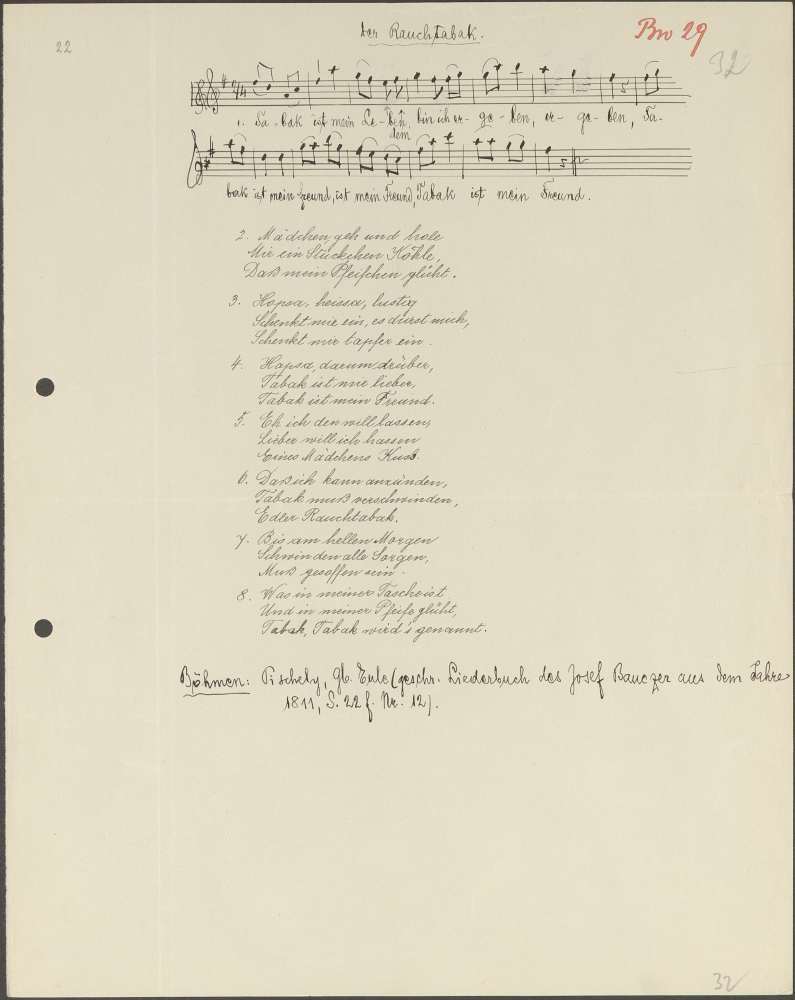 Der Rauchtabak.
Bw 29
22
32
1. Ta-bak ist mein Le-ben, bin ich er-ge-ben, er-ge-ben, Ta-
dem
bak ist mein Freund, ist mein Freund, Tabak ist mein Freund.
2. Mädchen, geh und hole
Mir ein Stückchen Kohle,
Daß mein Pfeifchen glüht.
3. Hopsa, heissa, lustig
Schenkt mir ein, es durst mich,
Schenkt mir tapfer ein.
4. Hopsa, darum drüber,
Tabak ist mir lieber,
Tabak ist mein Freund.
5. Eh ich den will lassen,
Lieber will ich hassen
Eines Mädchens Kuss.
6. Daß ich kann anzünden,
Tabak muß verschwinden,
Edler Rauchtabak.
7. Bis am hellen Morgen
Schwinden alle Sorgen,
Muß gesoffen sein.
8. Was in meiner Tasche ist
Und in meiner Pfeife glüht,
Tabak, Tabak wird's genannt.
Böhmen: Pischely, Gb. Eule (geschr. Liederbuch des Josef Bauczer aus dem Jahre
1811, S. 22 f. Nr. 12).
32